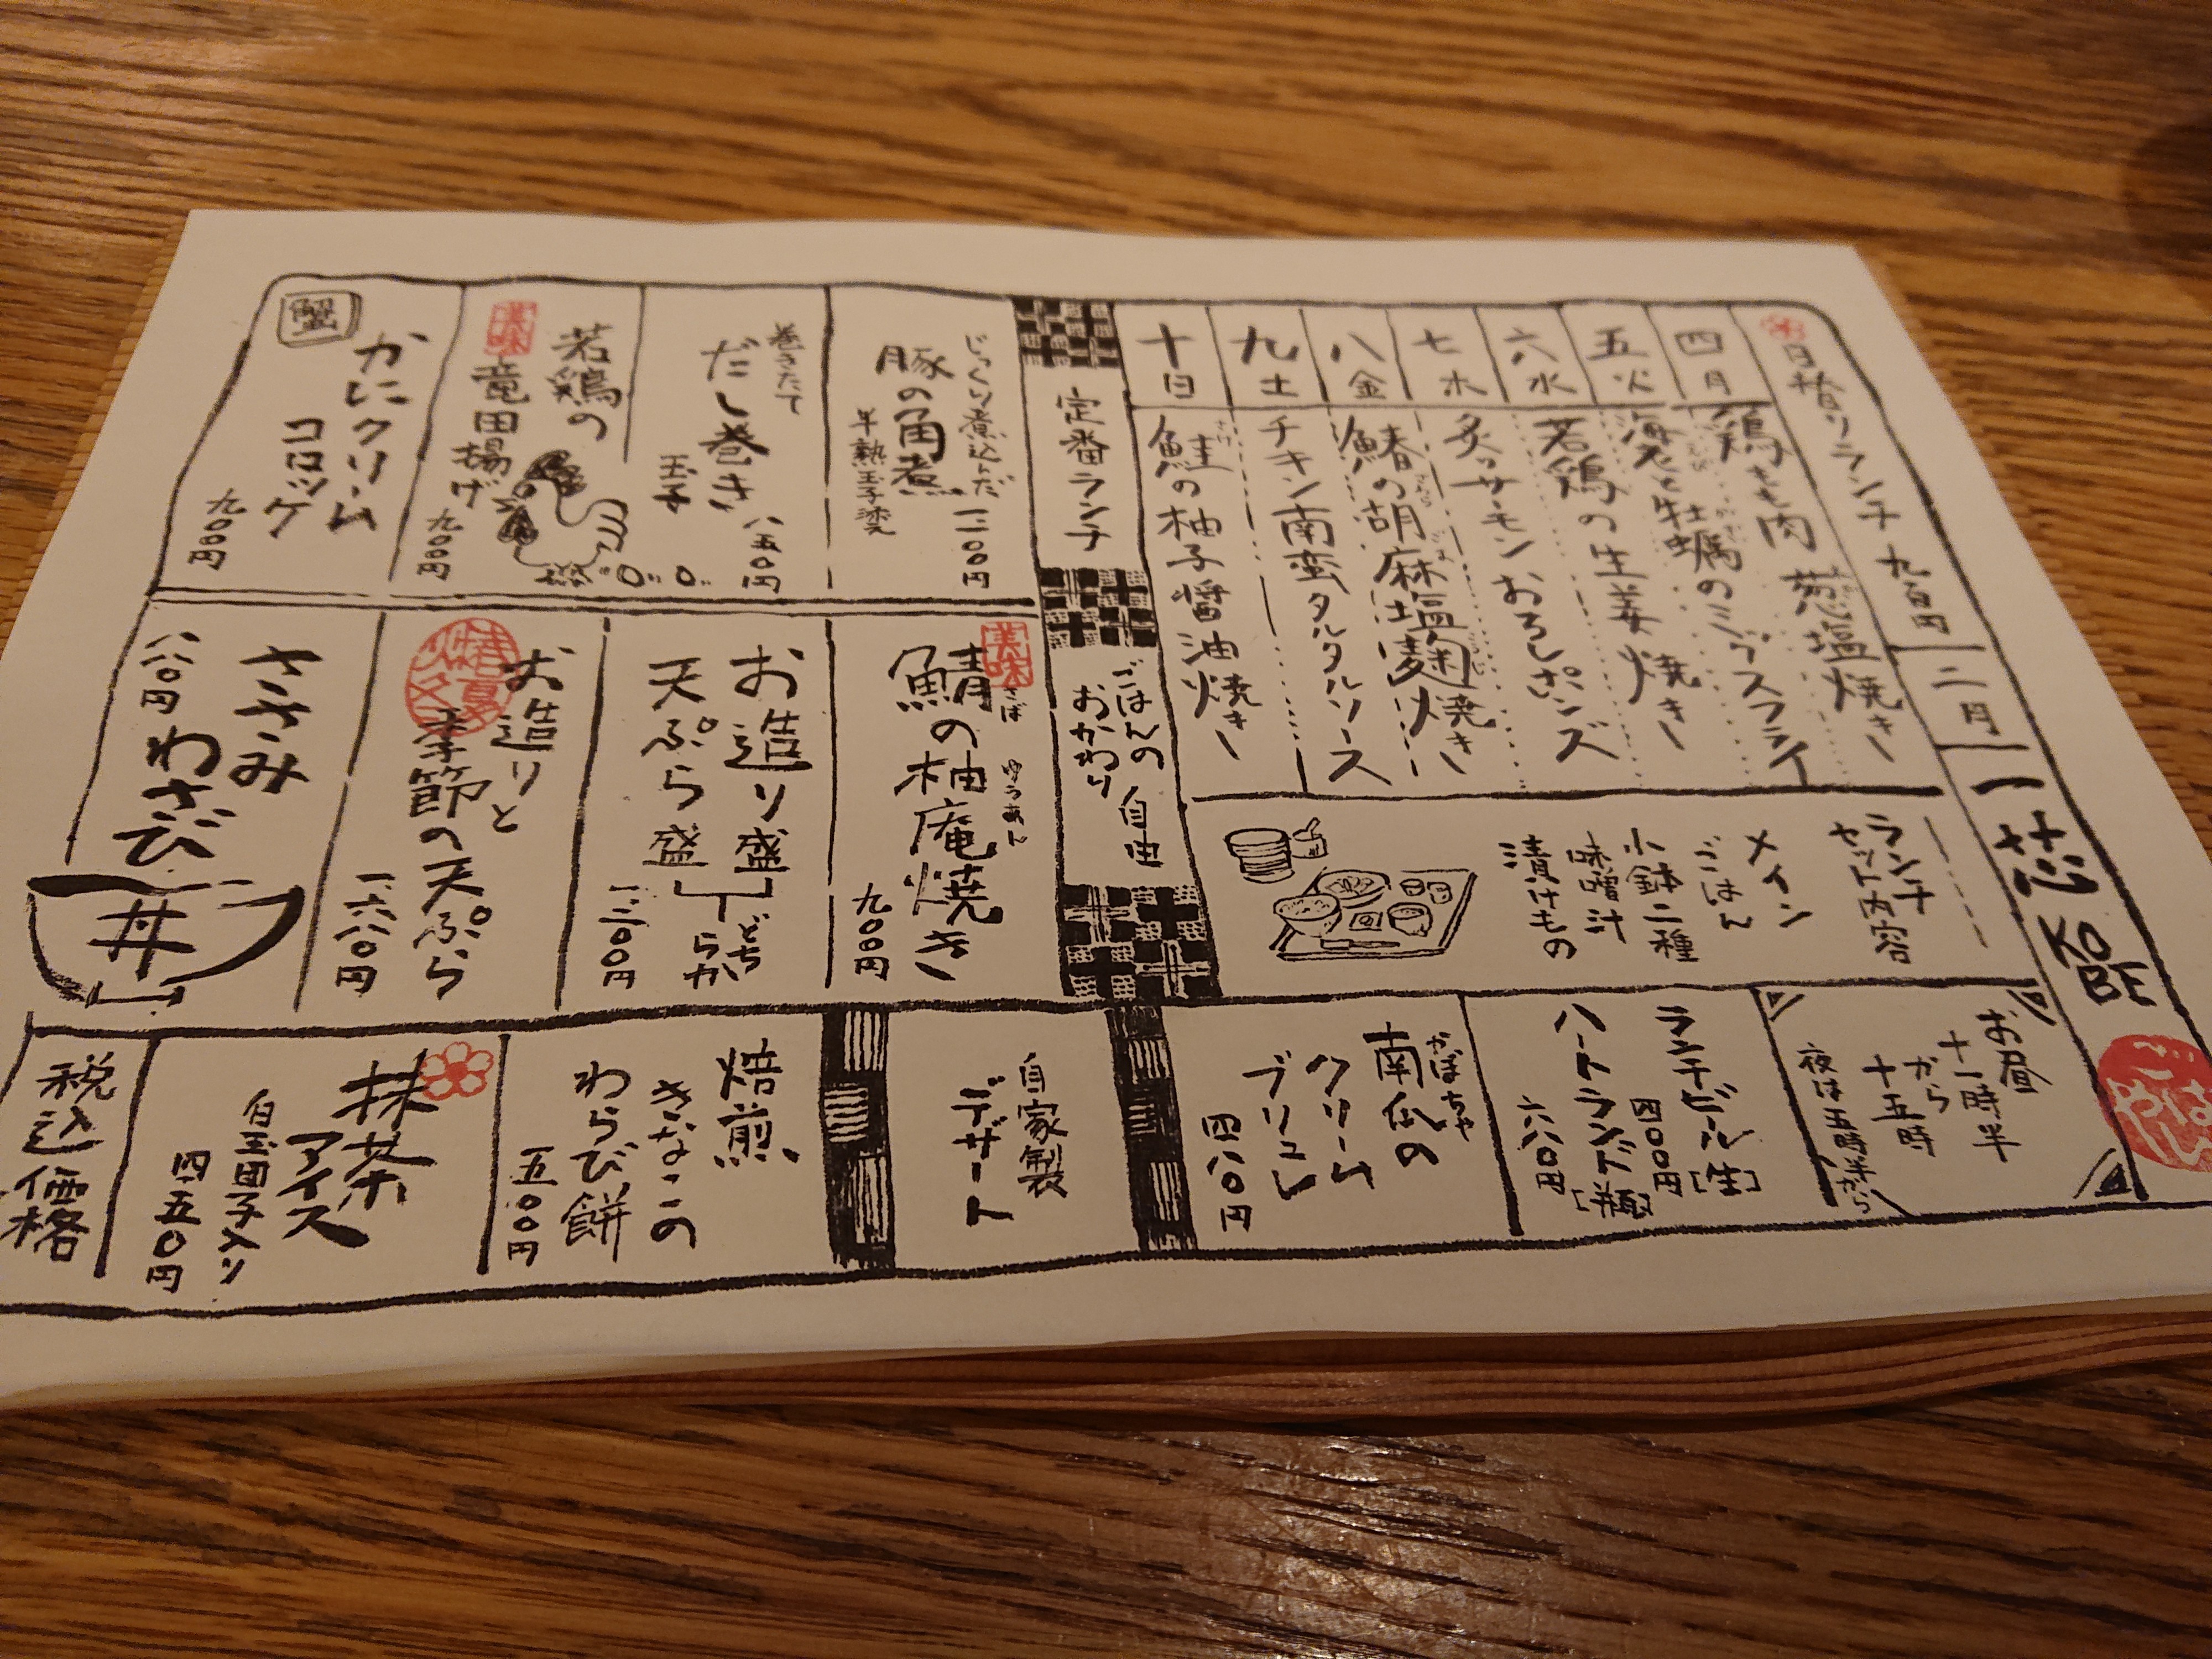 一芯
KOBE
ごはんやはし
二月
日替りランチ 九百円
四月 鶏もも肉葱塩焼き
五火 海老と牡蠣のミックスフライ
えび かき
六水 若鶏の生姜焼き
七木 炙りサーモンおろしポンズ
八金 鰆の胡麻塩麹焼き
さわら ごま こうじ
九土 チキン南蛮タルタルソース
十日 鮭の柚子醤油焼き
さけ
ランチ
セット内容
メイン
ごはん
小鉢二種
味噌汁
漬けもの
お昼
十一時半
から
十五時
夜は五時半から
ランチビール[生]
四〇〇円
ハートランド[瓶]
六八〇円
かぼちゃ
南瓜の
クリーム
ブリュレ
四八〇円
定番ランチ
ごはんの
おかわり
自由
じっくり煮込んだ
豚の角煮
半熟玉子添え
一二〇〇円
巻きたて
だし巻き
玉子
八五〇円
若鶏の
美味
竜田揚げ
九〇〇円
蟹
かにクリーム
コロッケ
九〇〇円
美味
さば ゆうあん
鯖の柚庵焼き
九〇〇円
お造り盛
天ぷら盛
どちらか
一二〇〇円
お造りと
春夏秋冬
季節の天ぷら
一六八〇円
ささみ
わさび
丼
八八〇円
自家製
デザート
焙煎
きなこの
わらび餅
五〇〇円
抹茶
アイス
白玉団子入り
四五〇円
税込価格